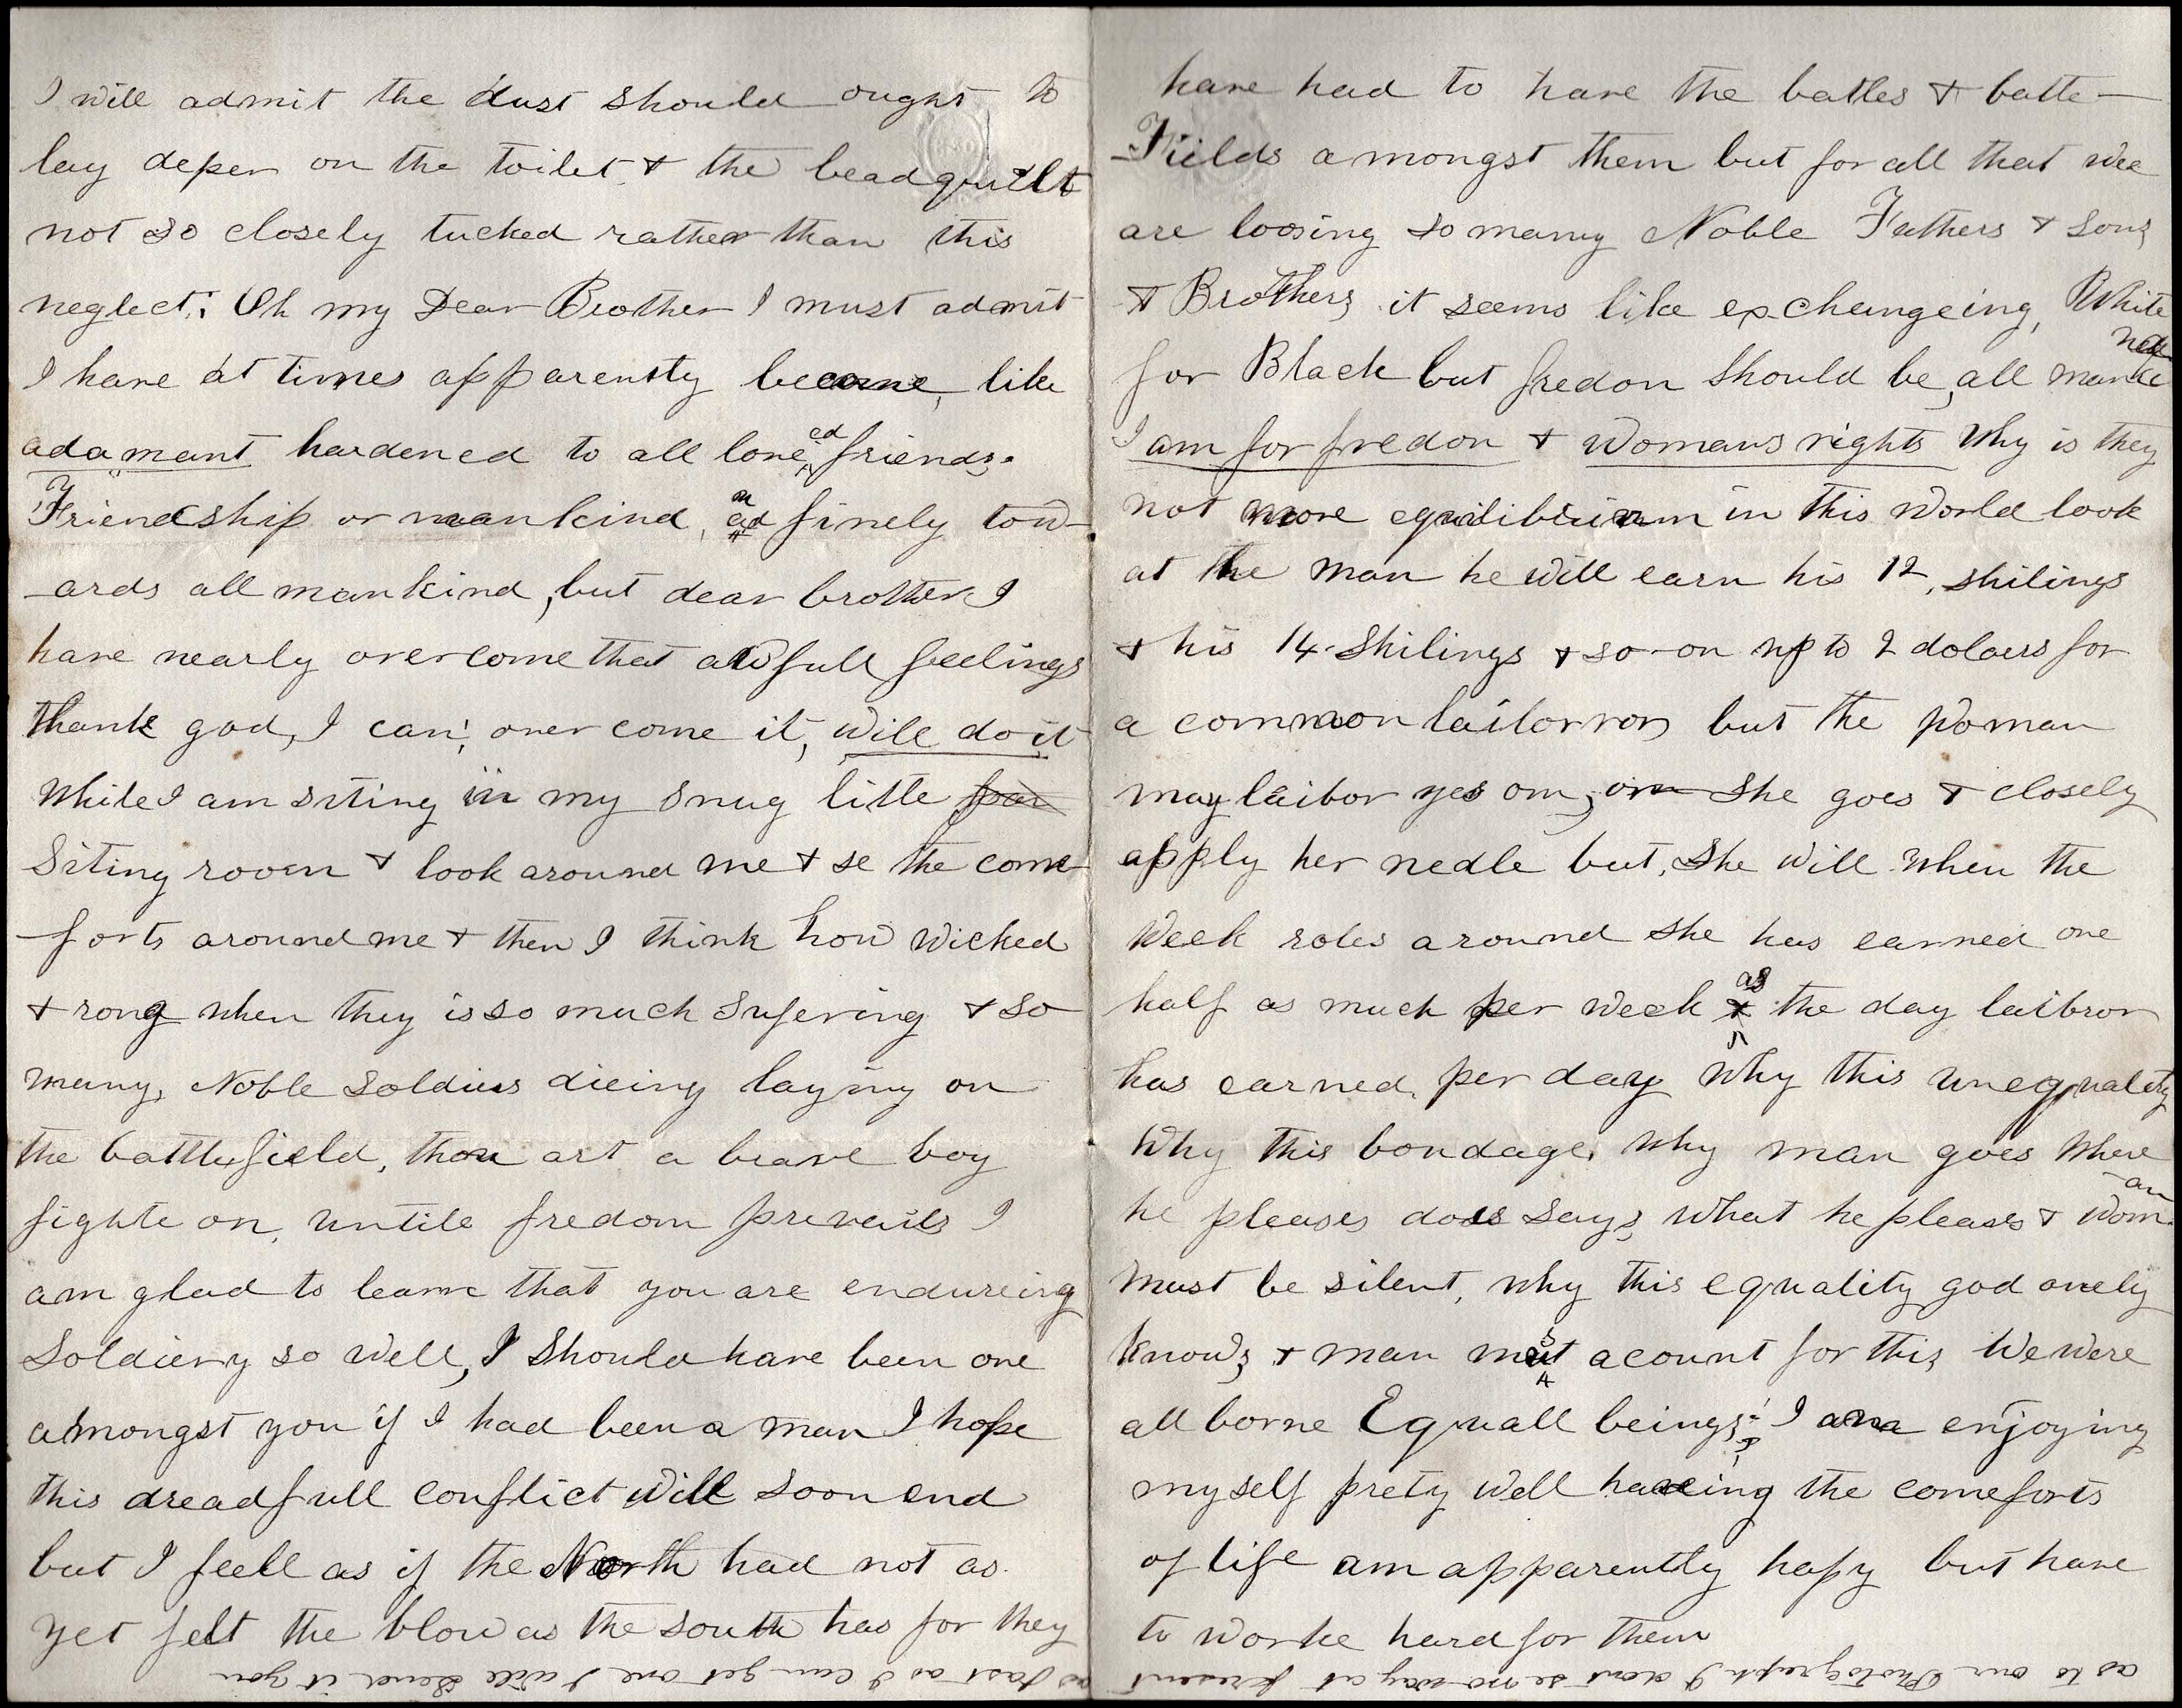 I will admit the dust should ought to
lay deper on the toilet & the beadquillt
not so closely tucked rather than this
neglect: Oh my Dear Brother I must admit
I have at times apparently become, like
adamant hardened to all loved friends.
Friendship or mankind, and finely tow-
-ards all mankind, but dear brother I
have nearly overcome that awfull feelings
thank god, I can, over come it, will do it
While I am siting in my snug litle par
Siting room & look around me & se the come-
-forts around me & then I think how wicked
& rong when they is so much sufering & so
many, Noble soldiers dieing laying on
the battlefield, thou art a brave boy
fighte on, untile fredom prevails I
am glad to learn that you are endureing
Soldiery so well, I should have been one
amongst you if I had been a man I hope
this dreadfull conflict will soon end
but I feell as if the North had not as
yet felt the blow as the south has for they
have had to have the batles & batle-
-Fields amongst them but for all that wee
are loosing so many Noble Fathers & sons
& Brothers it seems like exchangeing, White
for Black but fredon should be, all mankind
I am for fredon & womans rights Why is they
not more equilibrium in this world look
at the man he will earn his 12, shilings
& his 14 Shilings & so-on up to 2 dolaers for
a common laiborror but the woman
may laibor yes on, on she goes & closely
apply her nedle but, she will when the
Week roles around she has earned one
half as much per week as the day laibror
has earned, per day Why this unequality
Why this bondage, why man goes where
he pleases does says what he pleases & woman
must be silent, why this equality god onely
knows & man must acount for this We were
all borne Equall beings: I am enjoying
myself prety well haveing the comeforts
of life am apparently hapy but have
to worke hard for them
as to our Photograph I dont se no way at present
as fast as I can get one I will Send it you